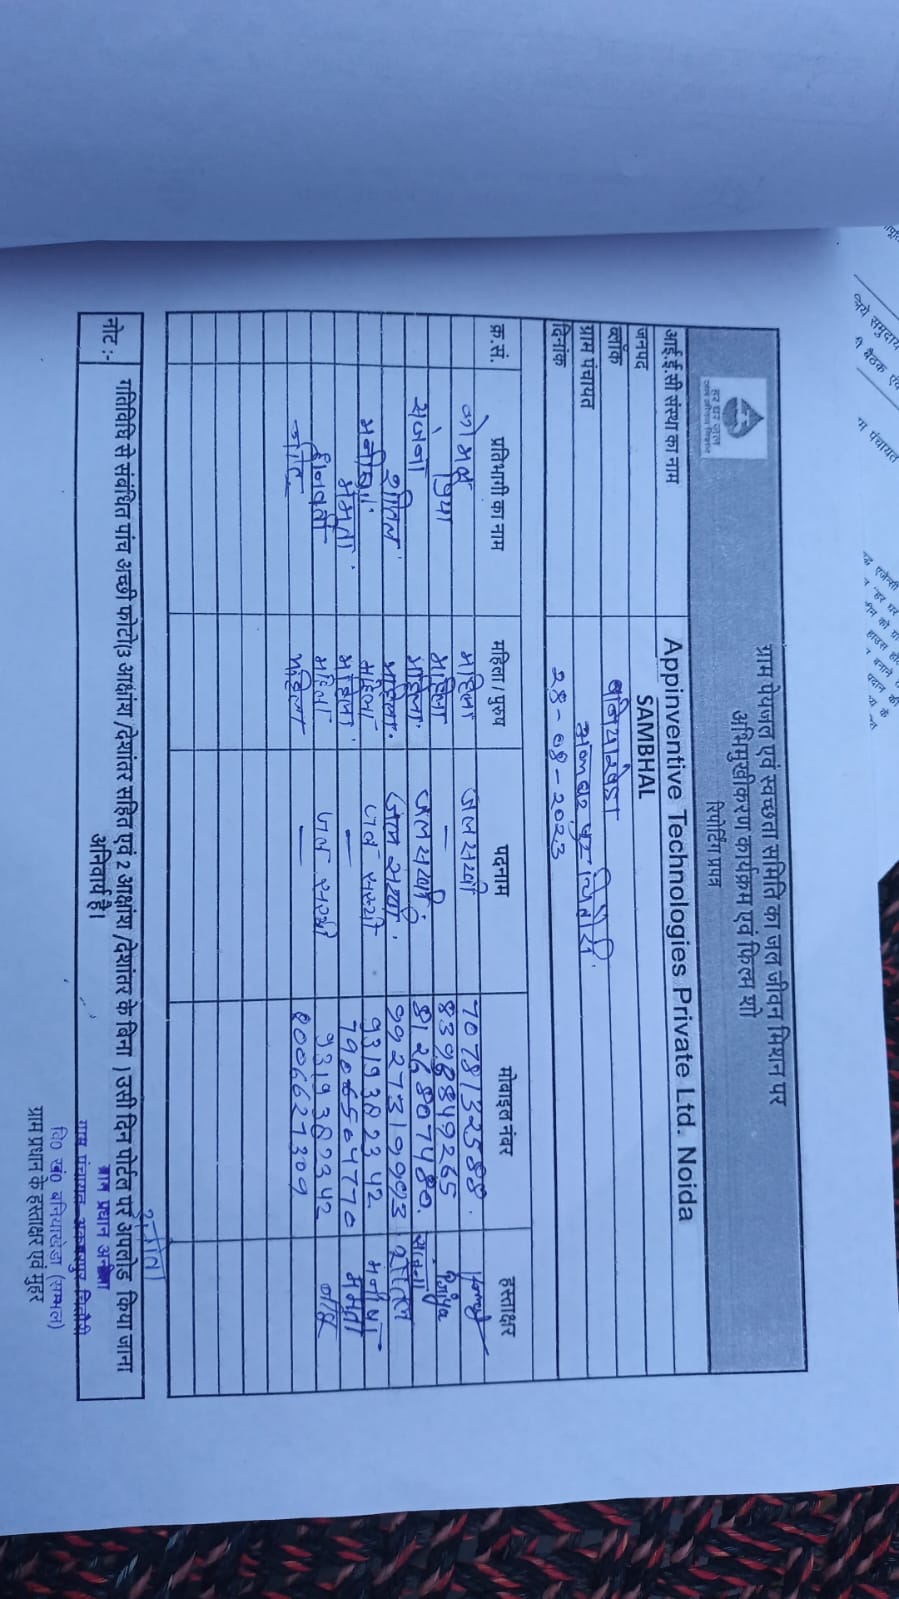 ग्राम पेयजल एवं स्वच्छता समिति का जल जीवन मिशन पर
अभिमुखीकरण कार्यक्रम एवं फिल्म शो
रिपोर्टिंग प्रपत्र
हर घर जल
आई.ई.सी संस्था का नाम Appinventive Technologies Private Ltd. Noida
जनपद SAMBHAL
ब्लॉक बनियाखेडा
ग्राम पंचायत अकबरपुर
दिनांक 28-08-2023
क्र.सं. प्रतिभागी का नाम महिला / पुरुष पदनाम मोबाइल नंबर हस्ताक्षर
कोमल महिला जल सखी 7078132588.
प्रिया महिला — 8398849265 प्रिया
संजना महिला जल सखी 8126807480.
महिला जल सखी 9927319993
मनीषा महिला जल सखी 9319382342 मनीषा
ममता महिला — 7906504770 ममता
महिला जल सखी 9319382342
महिला — 8006627309
नोट :- गतिविधि से संबंधित पांच अच्छी फोटो(3 आक्षांश /देशांतर सहित एवं 2 आक्षांश /देशांतर के बिना ) उसी दिन पोर्टल पर अपलोड किया जाना
अनिवार्य है।
अनीता
ग्राम प्रधान अनीता
ग्राम पंचायत अकबरपुर
वि0 खं0 बनियाखेडा (सम्भल)
ग्राम प्रधान के हस्ताक्षर एवं मुहर